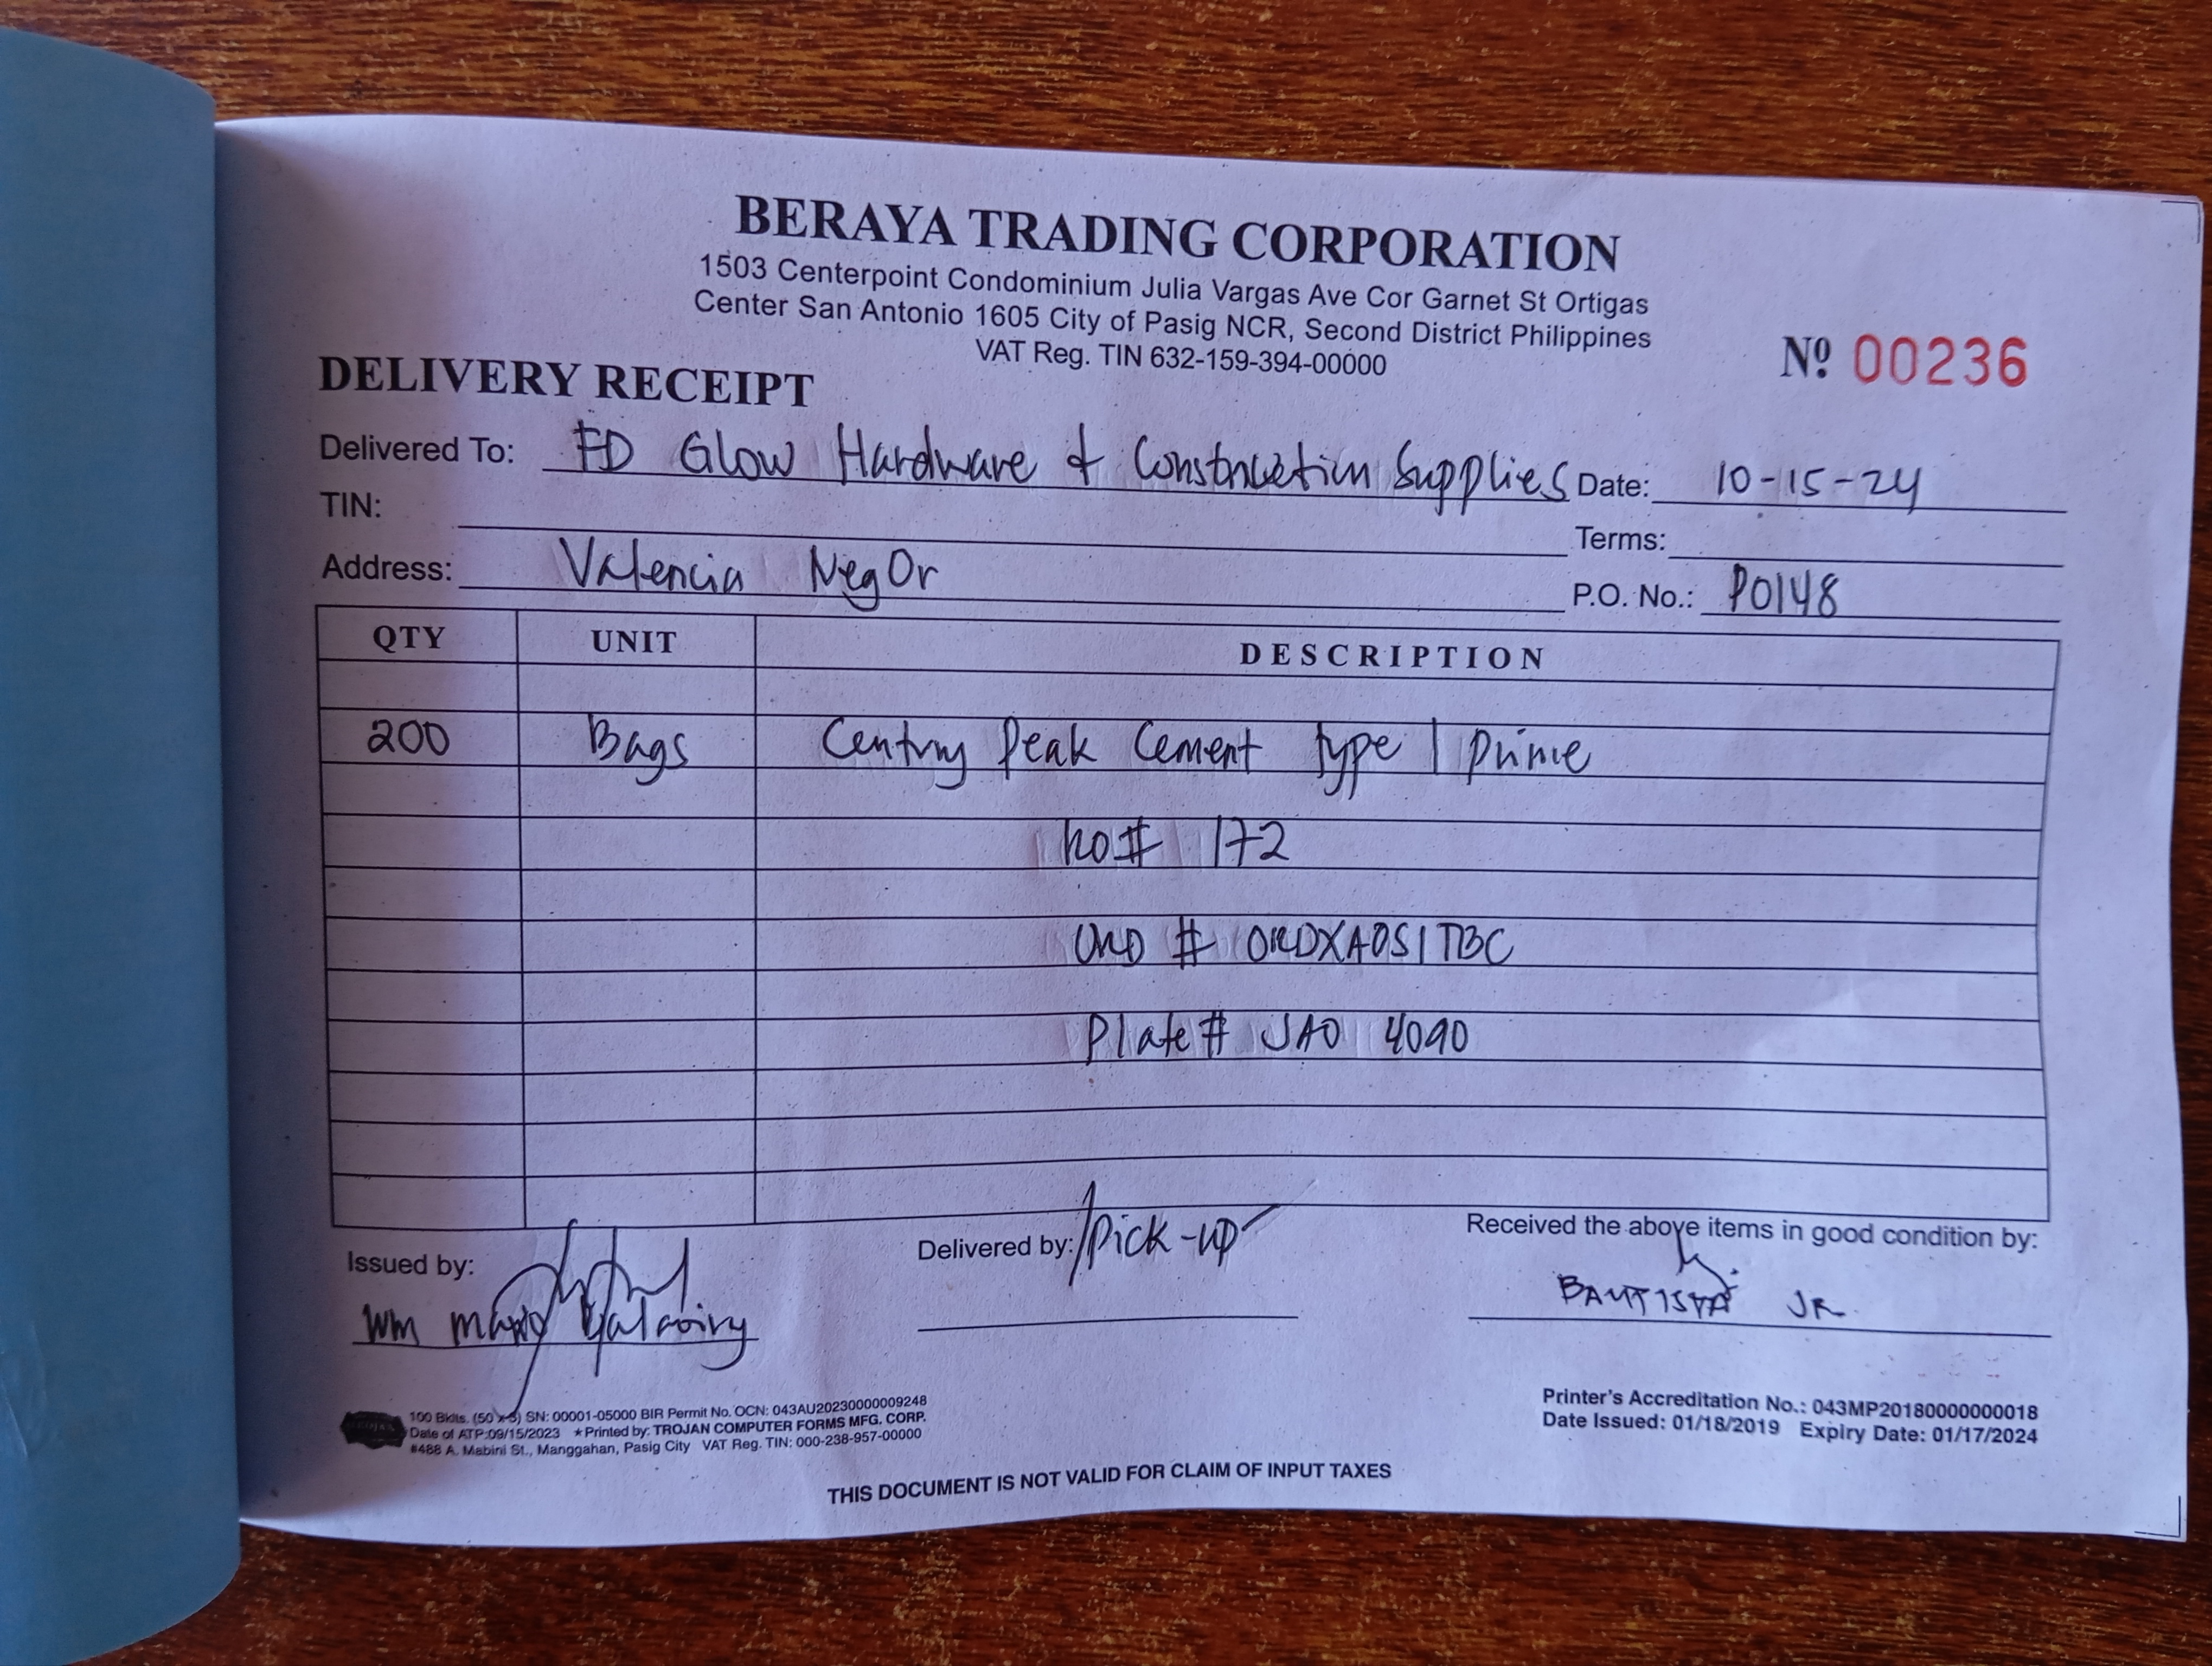 BERAYA TRADING CORPORATION
1503 Centerpoint Condominium Julia Vargas Ave Cor Garnet St Ortigas
Center San Antonio 1605 City of Pasig NCR, Second District Philippines
VAT Reg. TIN 632-159-394-00000
Nº 00236
DELIVERY RECEIPT
Delivered To: FD Glow Hardware & Construction Supplies Date: 10-15-24
TIN:
Terms:
Address: Valencia NegOr
P.O. No.: PO148
QTY UNIT DESCRIPTION
200 Bags Century Peak Cement Type 1 Prime
# 172
# ORDXA051TBC
Plate # JAO 4090
Issued by:
Delivered by: Pick-up
Received the above items in good condition by:
BAUTISTA JR.
100 Bklts. (50 x 3) SN: 00001-05000 BIR Permit No. OCN: 043AU20230000009248
Date of ATP:09/15/2023 ★Printed by: TROJAN COMPUTER FORMS MFG. CORP.
#488 A. Mabini St., Manggahan, Pasig City VAT Reg. TIN: 000-238-957-00000
Printer's Accreditation No.: 043MP20180000000018
Date Issued: 01/18/2019 Expiry Date: 01/17/2024
THIS DOCUMENT IS NOT VALID FOR CLAIM OF INPUT TAXES